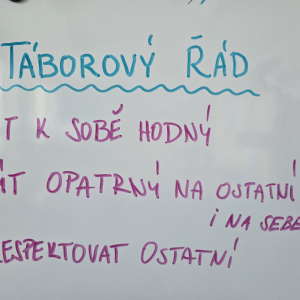 TÁBOROVÝ ŘÁD
K SOBĚ HODNÝ
OPATRNÝ NA OSTATNÍ
I NA SEBE
RESPEKTOVAT OSTATNÍ